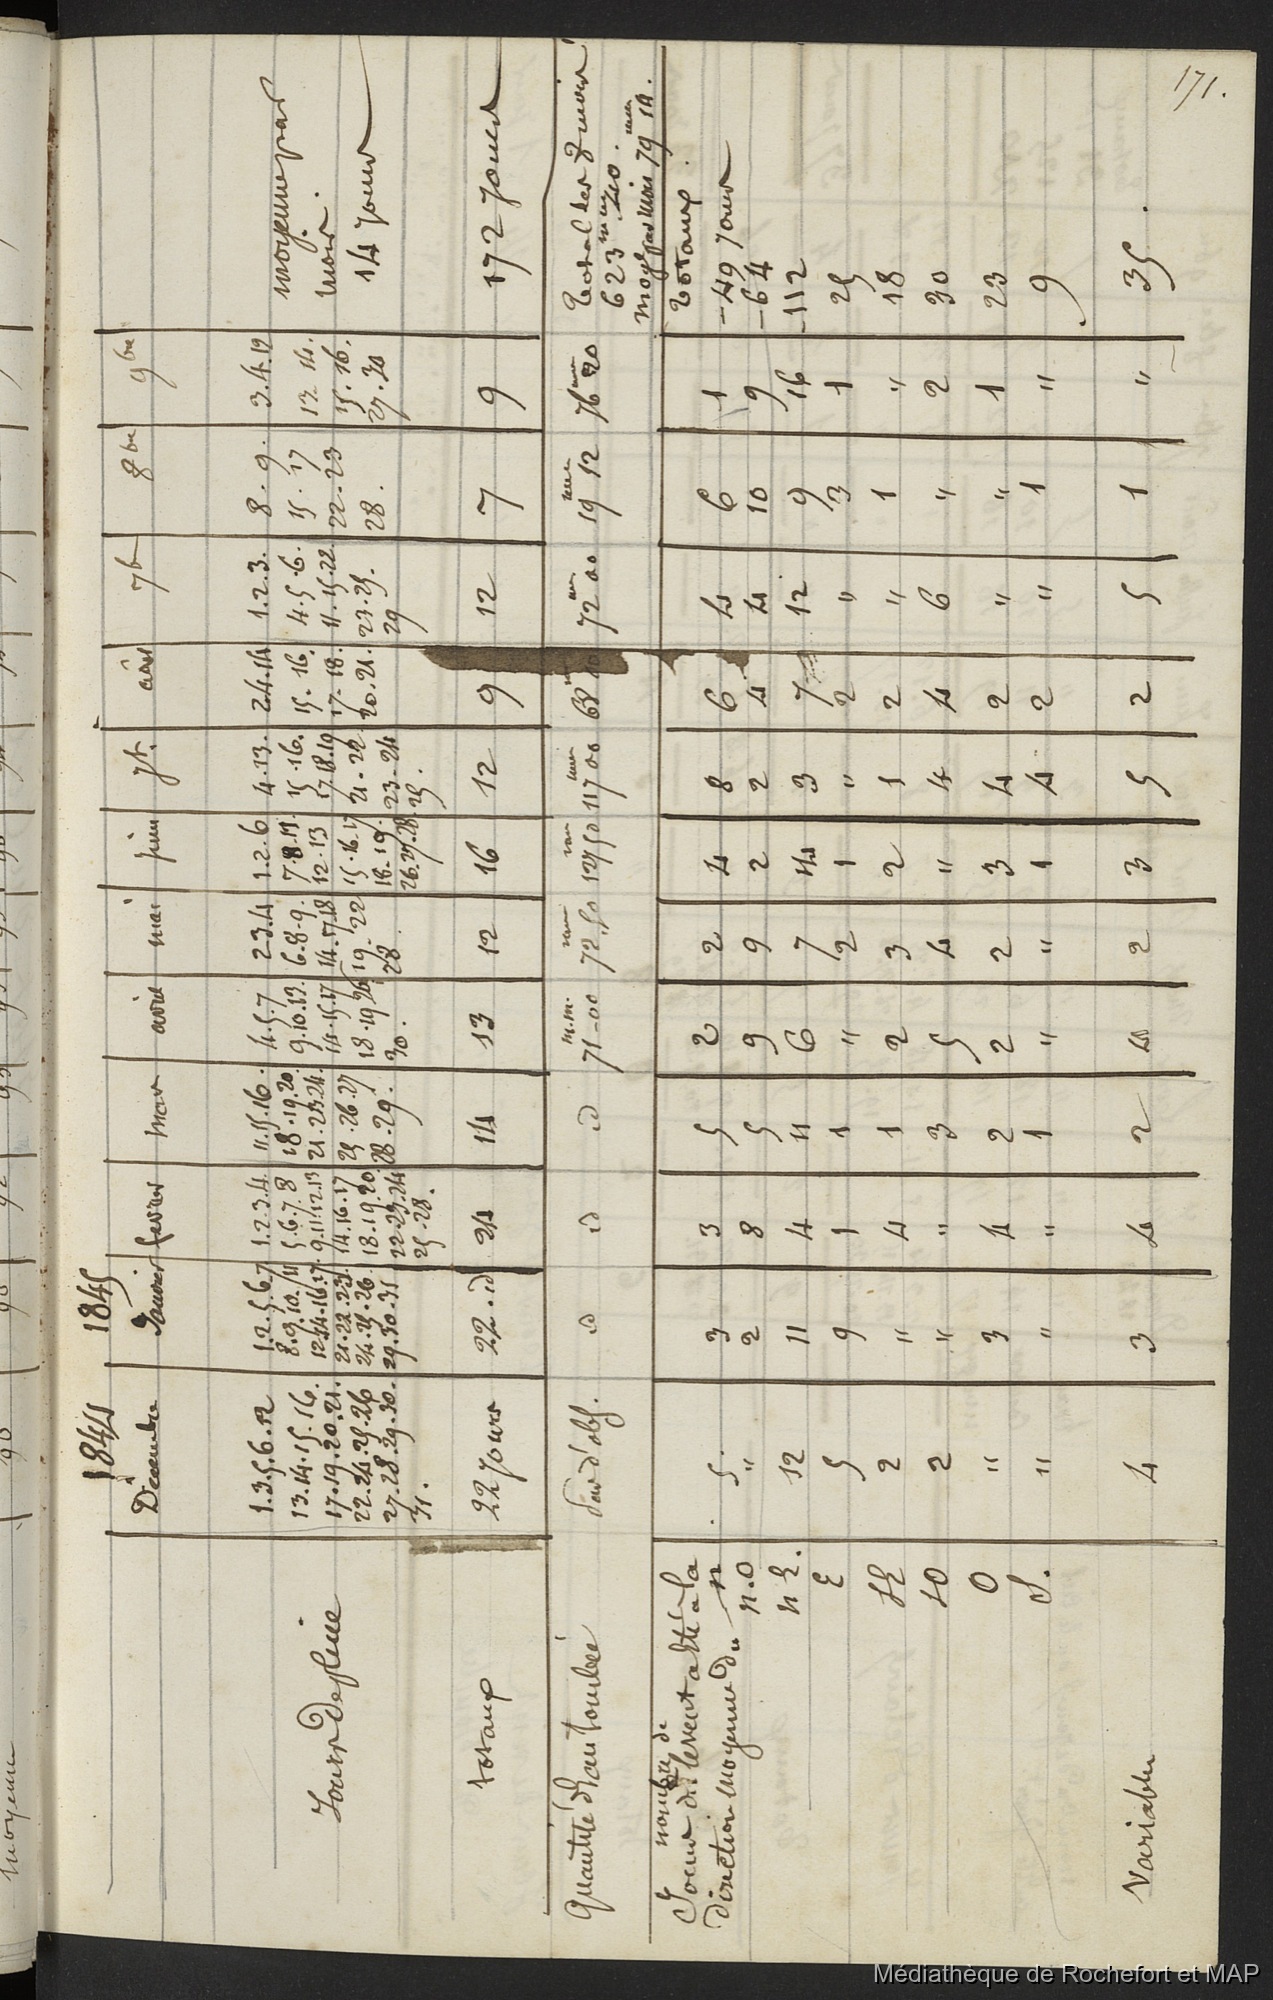 171.
1844
1845
Décembre
Janvier
fevrier
mars
avril
mai
juin
jt.
août
7b
8bre
9bre
moyenne par
mois.
14 Jours
Jours de pluie
1.3.5.6.12
13.14.15.16.
17.19.20.21.
22.24.25.26
27.28.29.30.
31.
1.2.5.6.7
8.9.10.11
12.14.16.17
21.22.23.
24.25.26.
29.30.31
1.2.3.4.
5.6.7.8
9.11.12.13
14.16.17
18.19.20.
22.23.24
25.28.
11.15.16.
18.19.20.
21.23.24.
25.26.27
28.29.
4.5.7
9.10.13.
14.15.17
18.19.26
30.
2 3.4
6.8.9.
14.17.18
19. 22
28.
1.2.6
7.8.11.
12.13
15.16.17
18.19.
26.27.28
4.13.
15.16.
17.18.19
21.22
23.24
25.
2.4.14
15.16.
17.18.
20.21.
1.2.3.
4.5.6.
11.15.22.
23.25.
29
8.9.
15.17
22.23
28.
3.4.12
13.14.
15.16.
27.30
totaux
22 Jours 22.id 24 14 13 12 16 12 9 12 7 9 172 Jours
Quantité d'eau tombée
Pas d'obs. id id id 71-00 m.m. 72.50 127 50 117 00 68 72 00 19 12 76 20
Total des 8 mois
623 mm 210.
moy. par mois 79 mm 10.
nombre de
Jours où le vent a été à la
direction moyenne du
totaux
n 5. 3 3 5 2 2 4 8 6 4 6 1 -49 Jours
n.O " 2 8 5 9 9 2 2 4 4 10 9 -64
n E. 12 11 4 11 6 7 14 3 7 12 9 16 -112
E 5 9 1 1 " 2 1 " 2 " 3 1 25
SE 2 " 4 1 2 3 2 1 2 " 1 " 18
SO 2 " " 3 5 4 " 4 4 6 " 2 30
O " 3 4 2 2 2 3 4 2 " " 1 23
S. " " " 1 " " 1 4 2 " 1 " 9
Variables 4 3 4 2 4 2 3 5 2 5 1 " 35.
Médiathèque de Rochefort et MAP